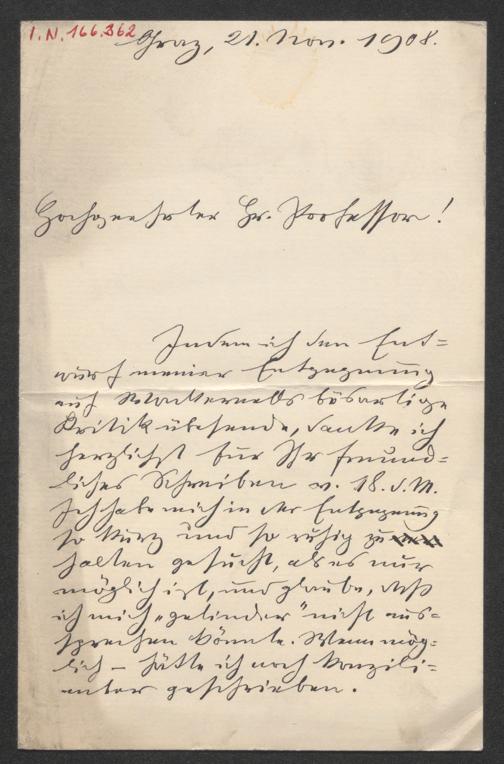 I.N. 166.362
Graz, 21. Nov. 1908.
Hochgeehrter Hr. Professor!
Indem ich den Ent=
wurf meiner Entgegnung
auf Wackernells bösartige
Kritik übersende, danke ich
herzlichst für Ihr freund=
liches Schreiben v. 18. d. M.
Ich habe mich in der Entgegnung
so kurz und so ruhig zu
halten gesucht, als es nur
möglich ist, und glaube, daß
ich mich „gelinder" nicht aus=
sprechen könnte. Wenn mög=
lich – hätte ich noch konzili=
anter geschrieben.